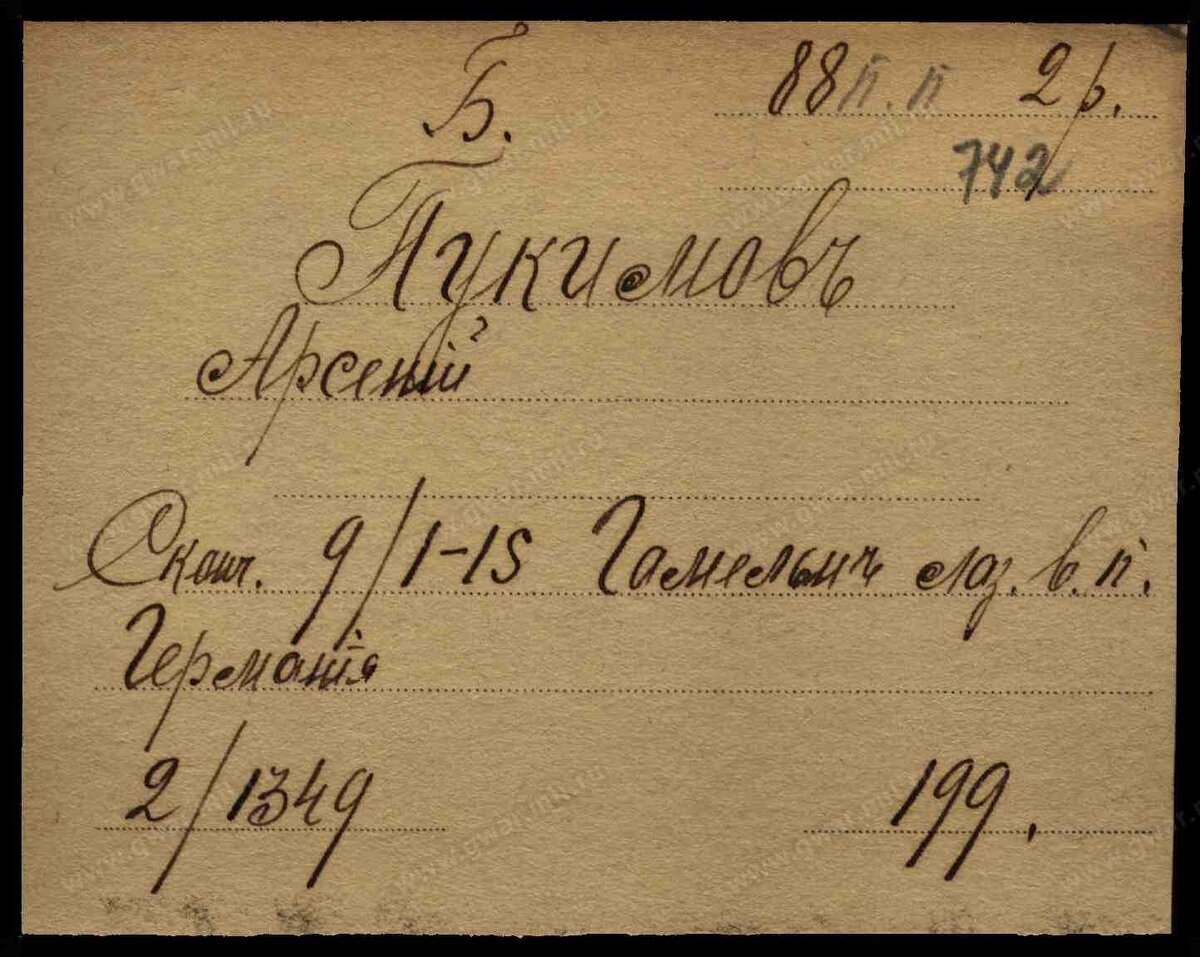 Б.
88 п. п 2 р.
742
Пукимовъ
Арсеній
Сконч. 9/1-15 Гамельнъ лаз. в. п.
Германія
2/1349
199.